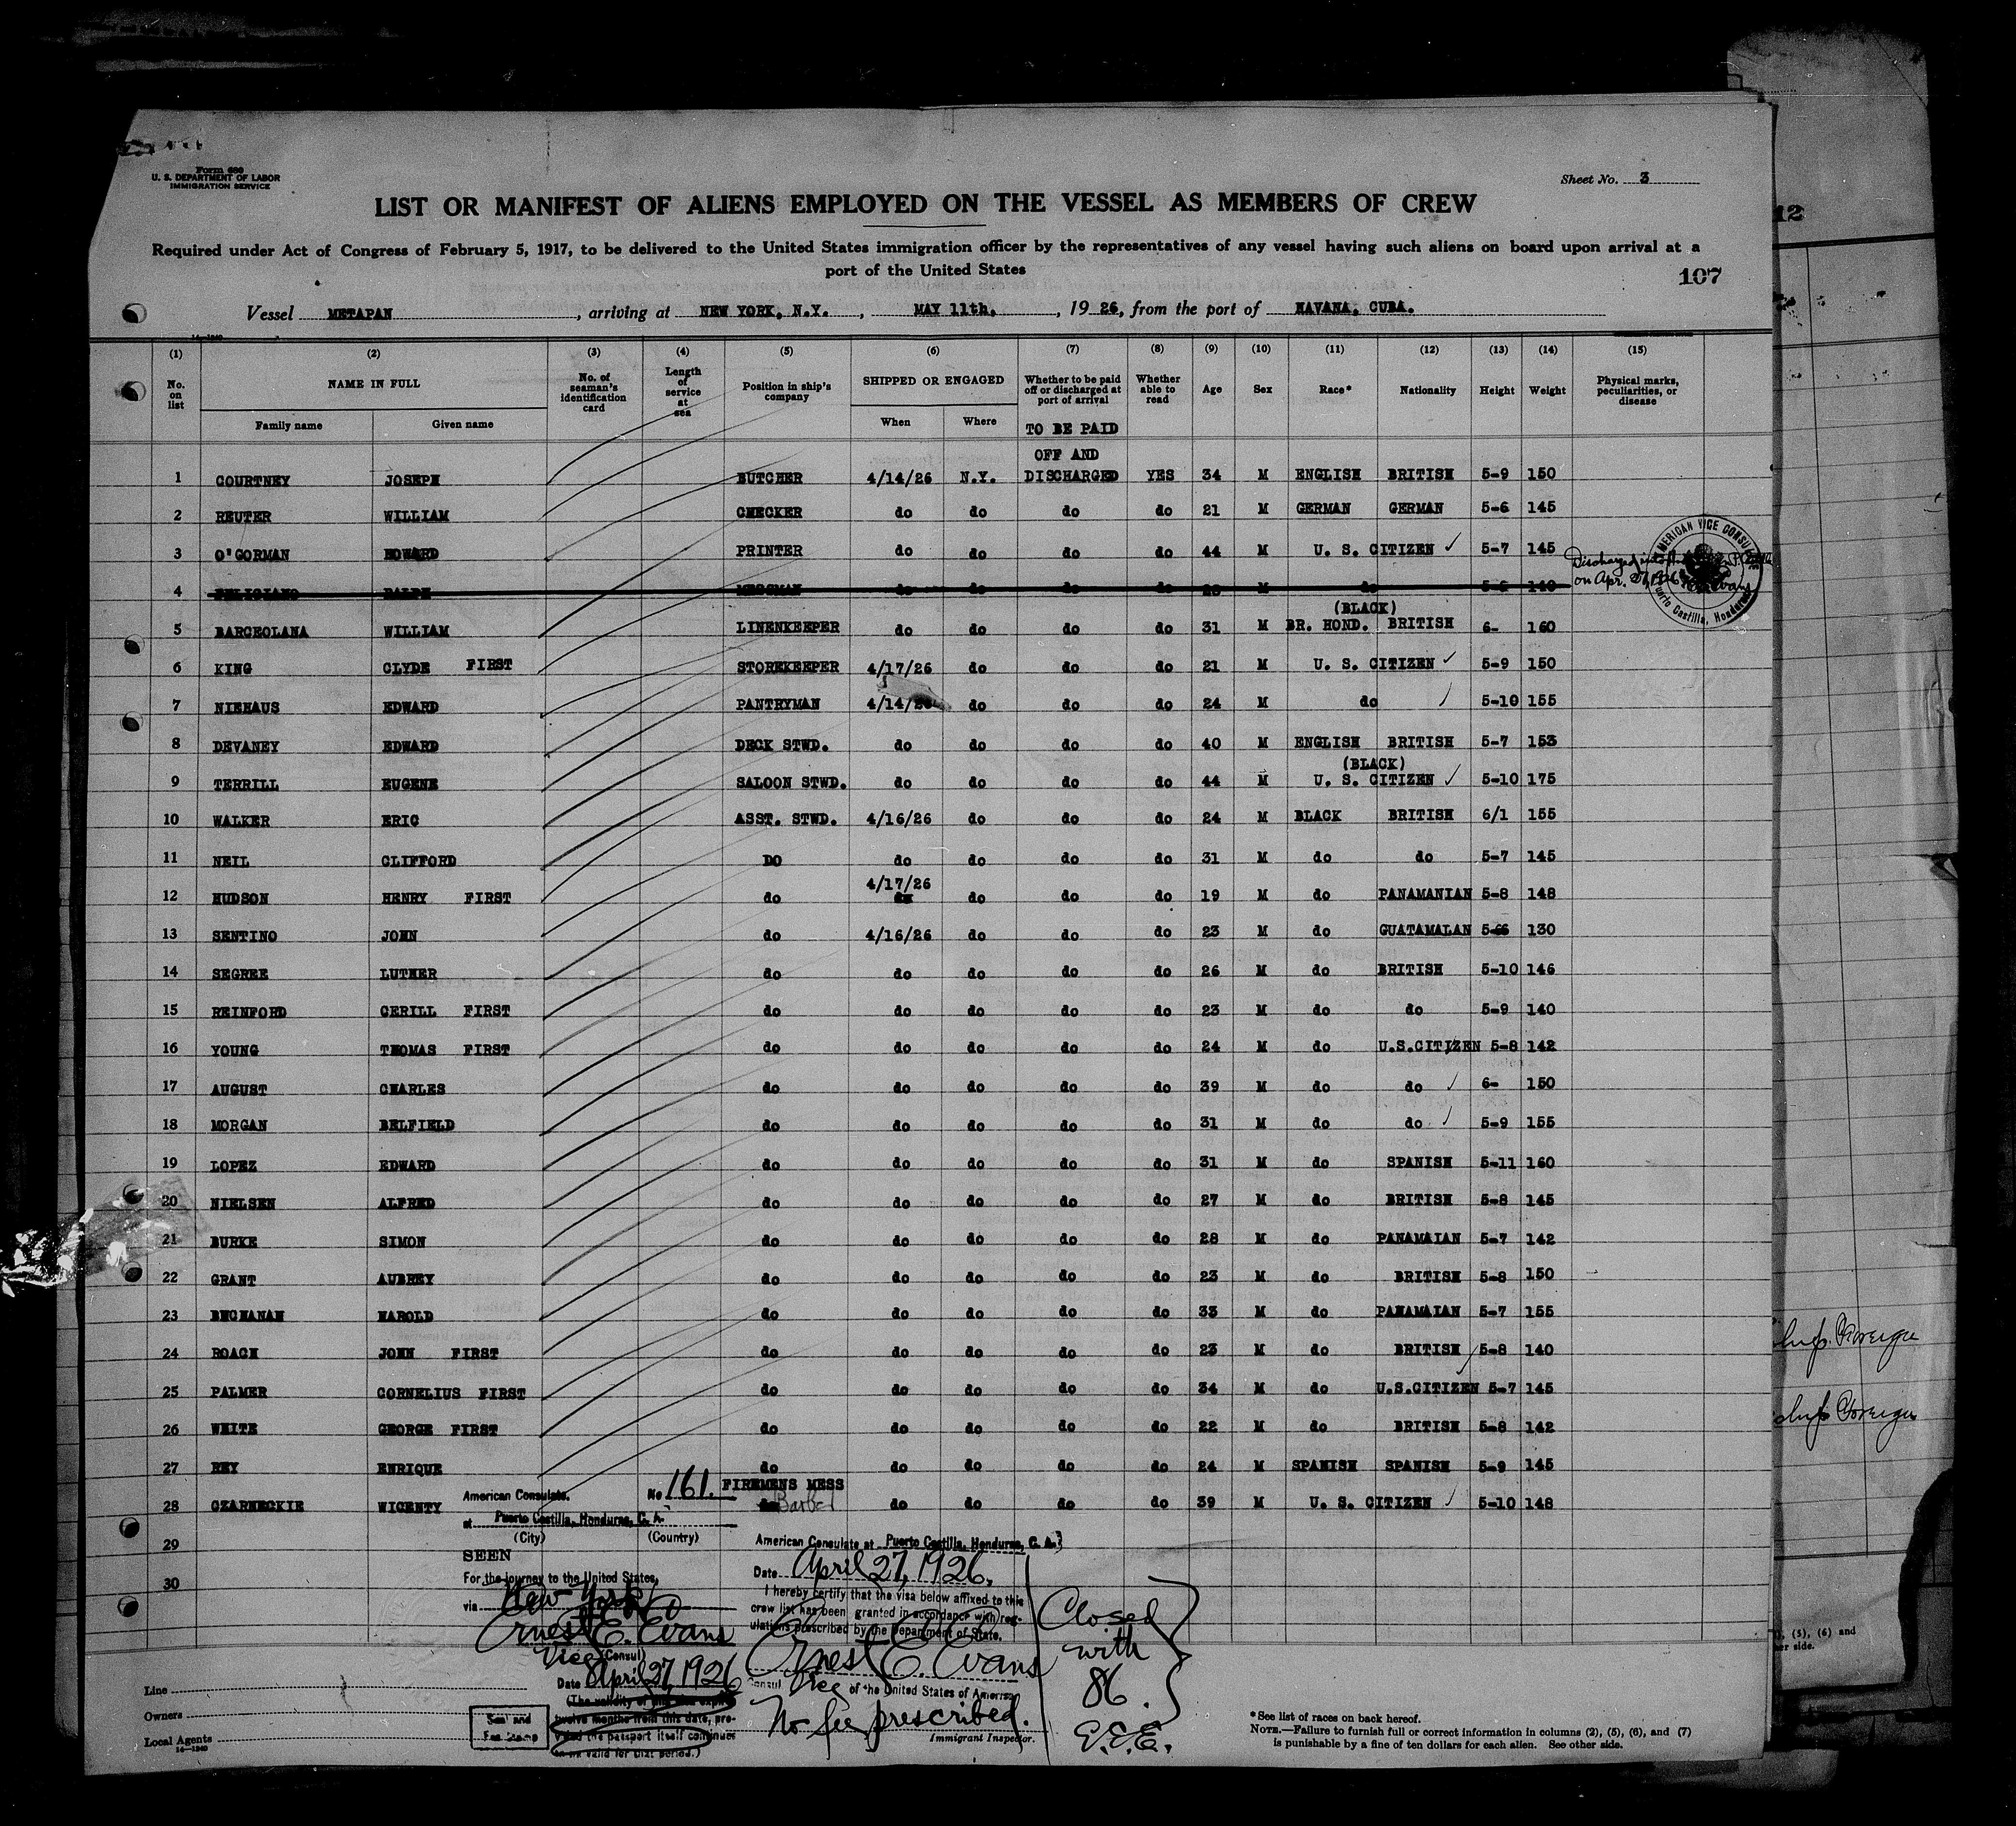 Form 680
U. S. DEPARTMENT OF LABOR
IMMIGRATION SERVICE
Sheet No. 3
12
LIST OR MANIFEST OF ALIENS EMPLOYED ON THE VESSEL AS MEMBERS OF CREW
Required under Act of Congress of February 5, 1917, to be delivered to the United States immigration officer by the representatives of any vessel having such aliens on board upon arrival at a
port of the United States
107
Vessel METAPAN, arriving at NEW YORK, N.Y., MAY 11th, 1926, from the port of HAVANA, CUBA.
(1) (2) (3) (4) (5) (6) (7) (8) (9) (10) (11) (12) (13) (14) (15)
No. on list NAME IN FULL Family name Given name No. of seaman's identification card Length of service at sea Position in ship's company SHIPPED OR ENGAGED When Where Whether to be paid off or discharged at port of arrival Whether able to read Age Sex Race* Nationality Height Weight Physical marks, peculiarities, or disease
TO BE PAID
OFF AND
1 COURTNEY JOSEPH BUTCHER 4/14/26 N.Y. DISCHARGED YES 34 M ENGLISH BRITISH 5-9 150
2 REUTER WILLIAM CHECKER do do do do 21 M GERMAN GERMAN 5-6 145
3 O'GORMAN HOWARD PRINTER do do do do 44 M U. S. CITIZEN ✓ 5-7 145
4 FELICIANO RALPH MESSMAN do do do do M do 5-6 140 Discharged on Apr. 27, 1926 Evans
AMERICAN VICE CONSUL Puerto Castilla, Honduras
(BLACK)
5 BARCEOLANA WILLIAM LINENKEEPER do do do do 31 M BR. HOND. BRITISH 6- 160
6 KING CLYDE FIRST STOREKEEPER 4/17/26 do do do 21 M U. S. CITIZEN ✓ 5-9 150
7 NIEHAUS EDWARD PANTRYMAN 4/14/26 do do do 24 M do ✓ 5-10 155
8 DEVANEY EDWARD DECK STWD. do do do do 40 M ENGLISH BRITISH 5-7 153
(BLACK)
9 TERRILL EUGENE SALOON STWD. do do do do 44 M U. S. CITIZEN ✓ 5-10 175
10 WALKER ERIC ASST. STWD. 4/16/26 do do do 24 M BLACK BRITISH 6/1 155
11 NEIL CLIFFORD DO do do do do 31 M do do 5-7 145
4/17/26
12 HUDSON HENRY FIRST do do do do do 19 M do PANAMANIAN 5-8 148
13 SENTINO JOHN do 4/16/26 do do do 23 M do GUATAMALAN 130
14 SEGREE LUTHER do do do do do 26 M do BRITISH 5-10 146
15 REINFORD CERILL FIRST do do do do do 23 M do do 5-9 140
16 YOUNG THOMAS FIRST do do do do do 24 M do U.S.CITIZEN 5-8 142
17 AUGUST CHARLES do do do do do 39 M do do ✓ 6- 150
18 MORGAN BELFIELD do do do do do 31 M do do ✓ 5-9 155
19 LOPEZ EDWARD do do do do do 31 M do SPANISH 5-11 160
20 NIELSEN ALFRED do do do do do 27 M do BRITISH 5-8 145
21 BURKE SIMON do do do do do 28 M do PANAMAIAN 5-7 142
22 GRANT AUBREY do do do do do 23 M do BRITISH 5-8 150
23 BUCHANAN HAROLD do do do do do 33 M do PANAMAIAN 5-7 155
24 ROACH JOHN FIRST do do do do do 23 M do BRITISH 5-8 140
25 PALMER CORNELIUS FIRST do do do do do 34 M do U.S.CITIZEN 5-7 145
26 WHITE GEORGE FIRST do do do do do 22 M do BRITISH 5-8 142
27 REY ENRIQUE do do do do do 24 M SPANISH SPANISH 5-9 145
FIREMENS MESS
28 CZARNECKIE WICENTY do do do do 39 M U. S. CITIZEN ✓ 5-10 148
29
30
American Consulate. No 161.
at Puerto Castilla, Honduras, C. A.
(City) (Country)
SEEN
For the journey to the United States,
via New York
Ernest E. Evans
Vice (Consul)
Date April 27, 1926
(The validity of this visa expires
twelve months from this date, pro-
vided the passport itself continues
to be valid for that period.)
Seal and
Fee Stamp
American Consulate at Puerto Castilla, Honduras, C. A.
Date April 27, 1926.
I hereby certify that the visa below affixed to this
crew list has been granted in accordance with reg-
ulations prescribed by the Department of State.
Ernest E. Evans
Consul Vice of the United States of America
No fee prescribed.
Immigrant Inspector.
Closed
with
86.
E.E.E.
Line
Owners
Local Agents
14—1240
*See list of races on back hereof.
NOTE.—Failure to furnish full or correct information in columns (2), (5), (6), and (7)
is punishable by a fine of ten dollars for each alien. See other side.
(5), (6) and
er side.